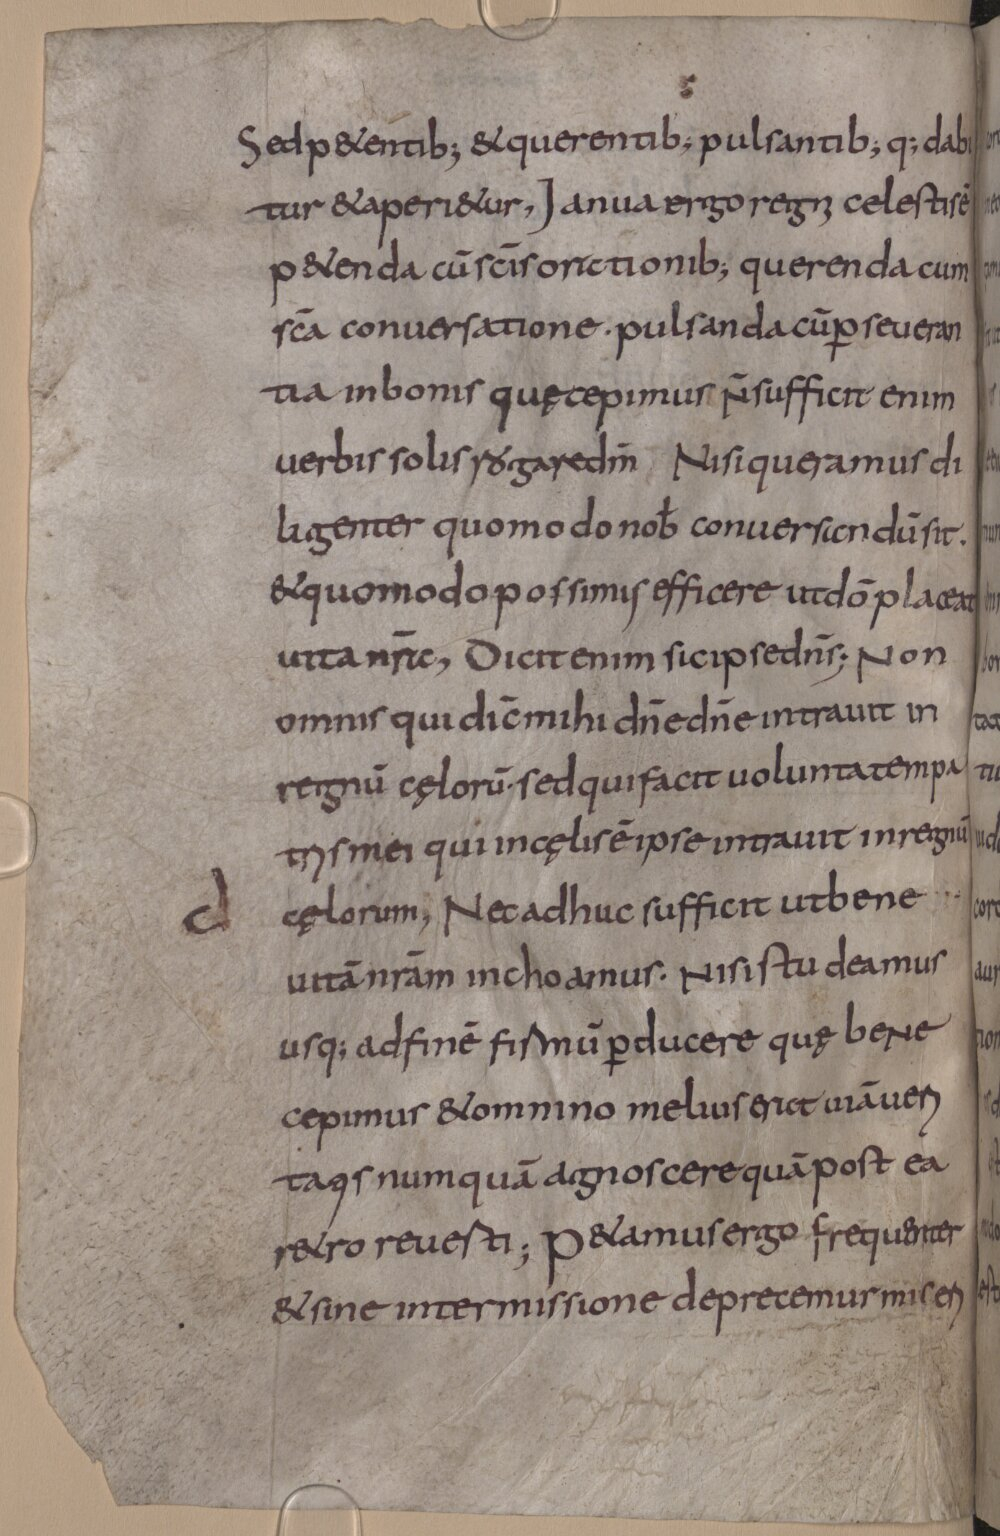 Sed p&entib; & querentib; pulsantib; q; dabi
tur & aperi&ur, Janua ergo regni celestis ē
p&enda cū scīs orationib; querenda cum
scā conuersatione . pulsanda cū ꝑseueran
tia in bonis quę cepimus n̄ sufficit enim
uerbis solis Nisi queramus di
ligenter quomodo nob̄ conuersandū sit .
& quomodo possimus efficere ut dō placeat
uita nr̄a, Dicit enim sic ipse dn̄s; Non
omnis qui dic̄ mihi dn̄e dn̄e intrauit in
regnū cęlorū . sed qui facit uoluntatem pa
tris mei qui in cęlis ē ipse intrauit in regnū
d
cęlorum, Nec adhuc sufficit ut bene
uitā nrām inchoamus . Nisi studeamus
usq; ad finē firmū ꝑducere quę bene
cepimus & omnino melius erat uiā ueri
taqs numquā agnoscere quā post ea
r&ro reuesti; P&amus ergo frequenter
& sine intermissione deprecemur miseri